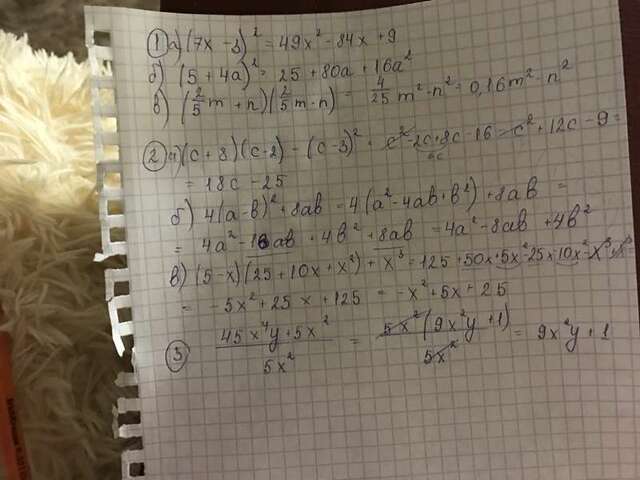 ① а) (7x - 3)² = 49x² - 84x + 9
б) (5 + 4a)² = 25 + 80a + 16a²
в) (2/5 m + n)(2/5 m - n) = 4/25 m² - n² = 0,16m² - n²
② а) (c + 8)(c - 2) - (c - 3)² = c² - 2c + 8c - 16 - c² + 12c - 9 =
6c
= 18c - 25
б) 4(a - b)² + 8ab = 4(a² - 4ab + b²) + 8ab =
= 4a² - 16ab + 4b² + 8ab = 4a² - 8ab + 4b²
в) (5 - x)(25 + 10x + x²) + x³ = 125 + 50x + 5x² - 25x - 10x² - x³ + x³
= -5x² + 25x + 125 = -x² + 5x + 25
③ 45x⁴y + 5x² / 5x² = 5x²(9x²y + 1) / 5x² = 9x²y + 1